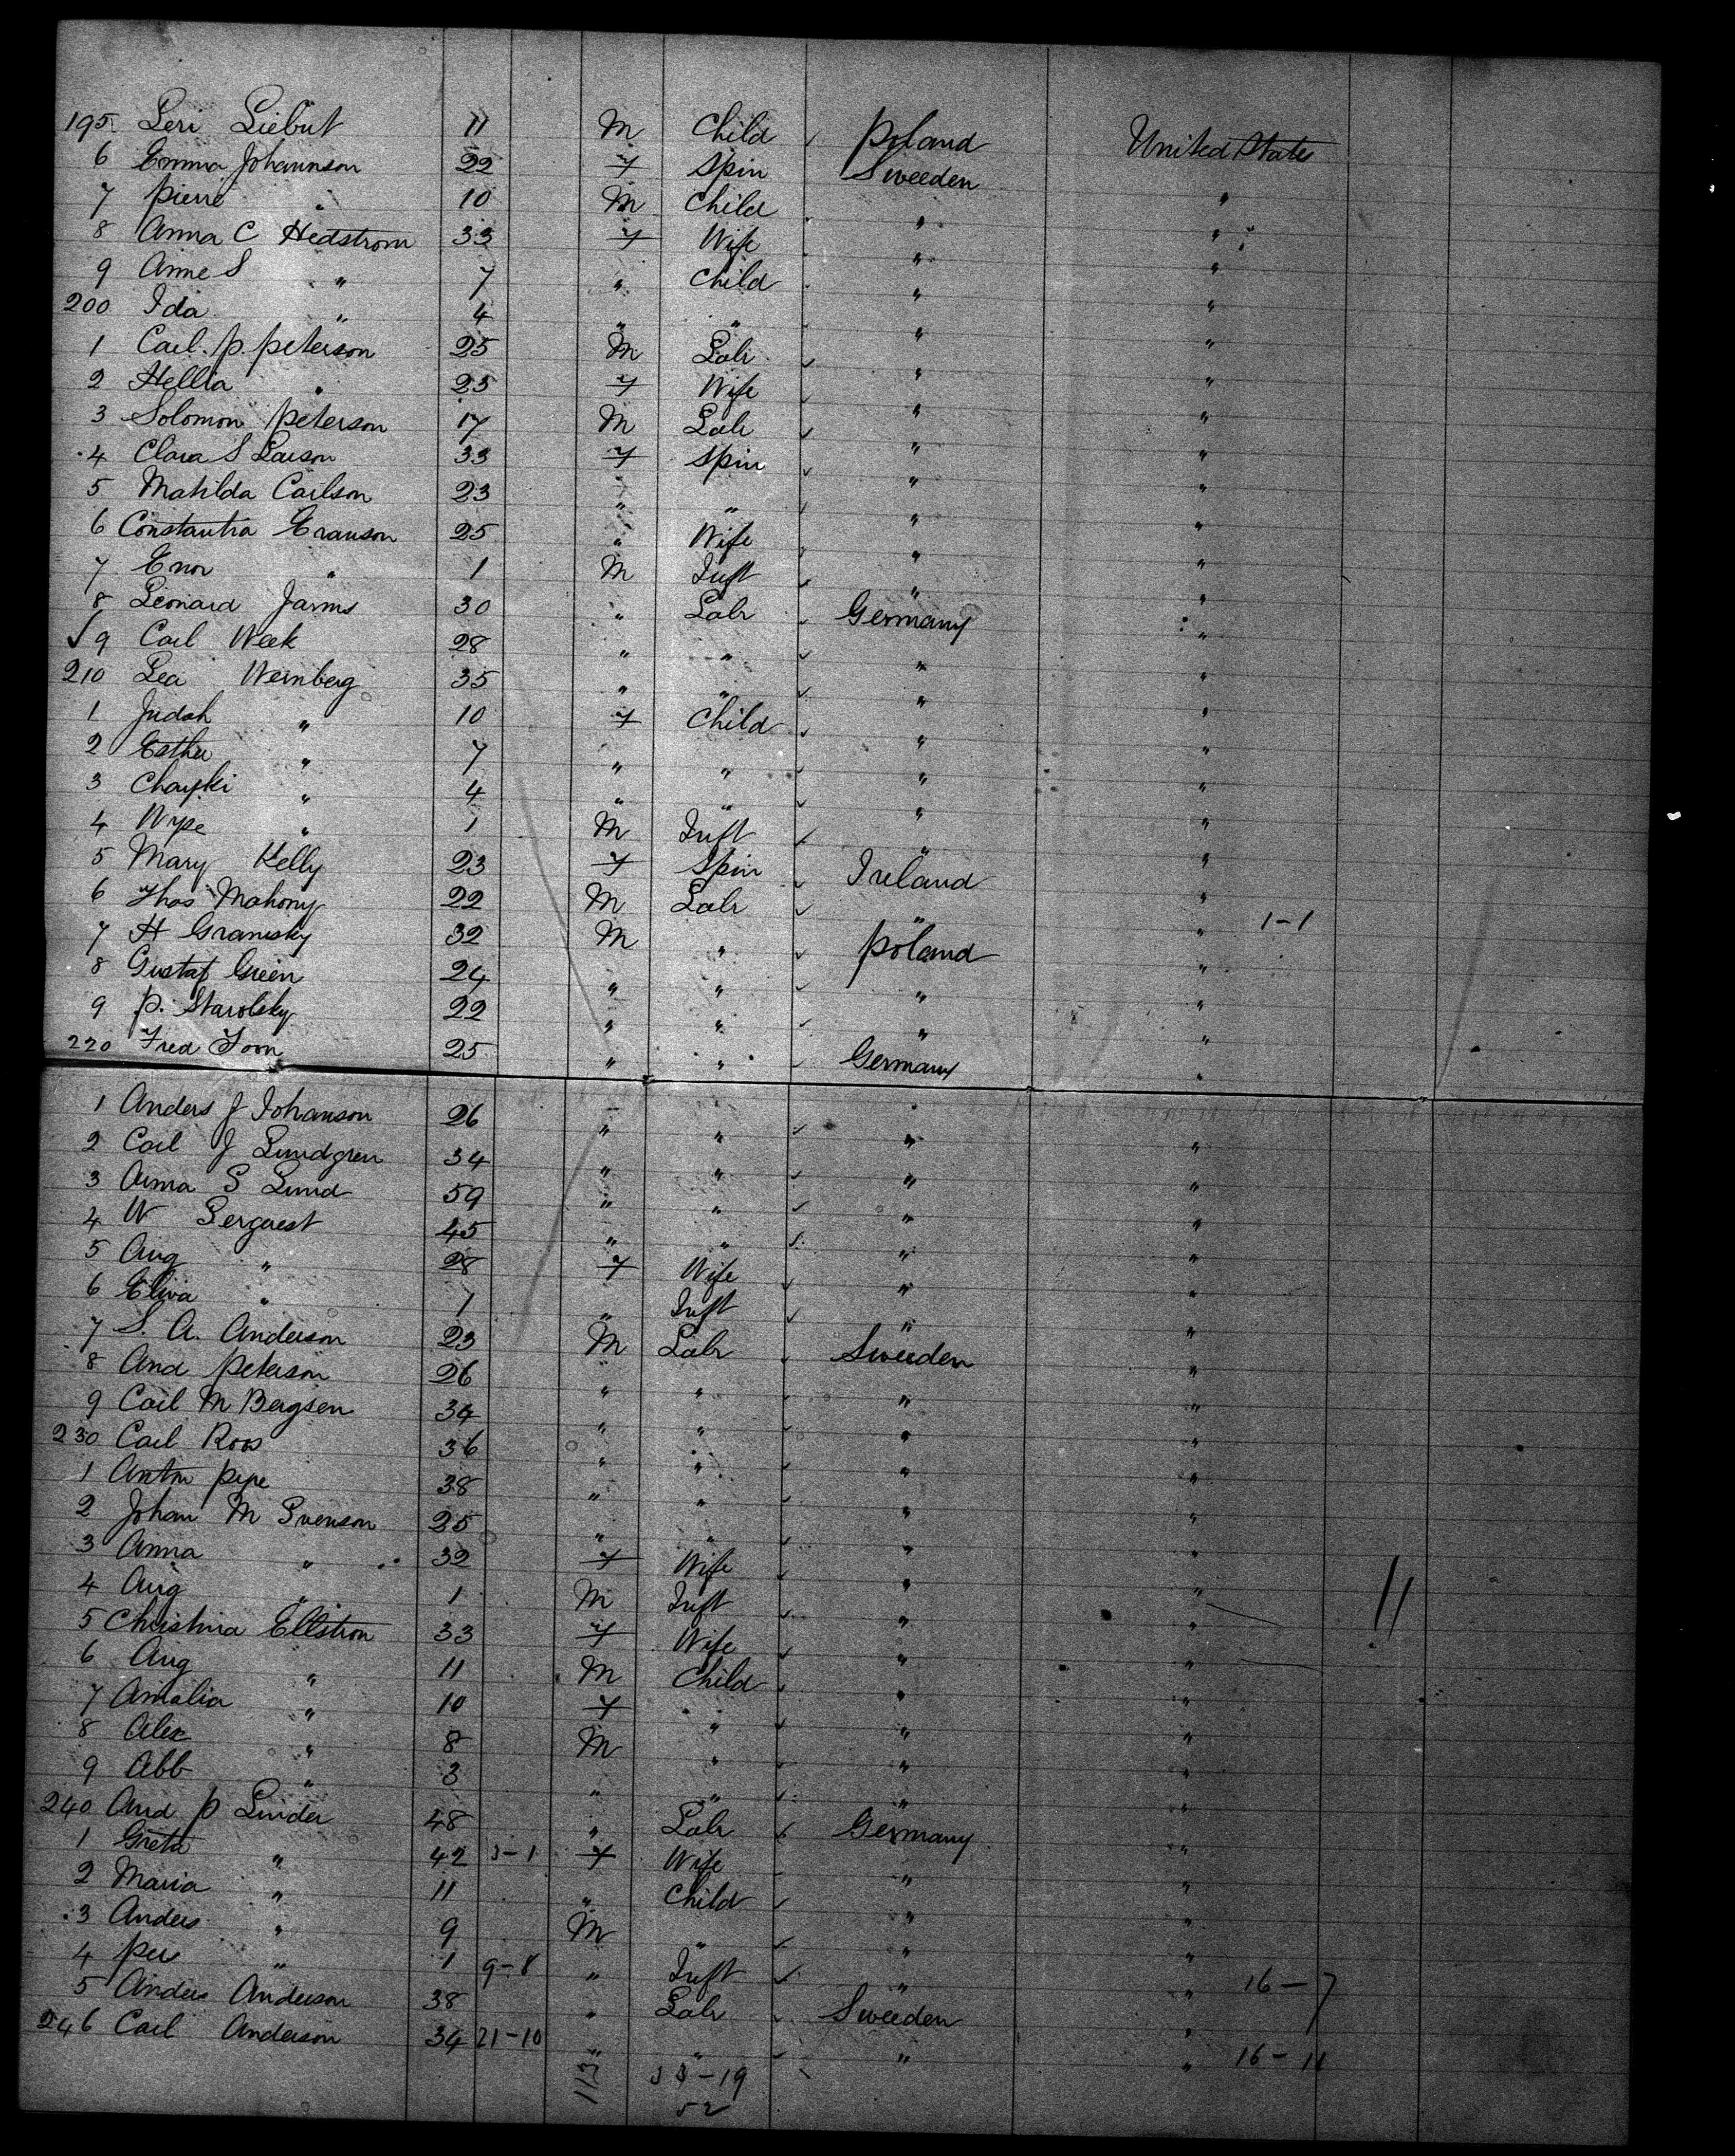 195 Leri Liebut 11 M Child Poland United States
6 Emma Johannson 22 f Spin Sweeden "
7 Pierre " 10 M Child " "
8 Anna C Hedstrom 33 f Wife " "
9 Anne S " 7 " Child " "
200 Ida " 4 " " " "
1 Carl P. Peterson 25 M Labr " "
2 Hellia " 25 f Wife " "
3 Solomon Peterson 17 M Labr " "
4 Clara S Larson 33 f Spin " "
5 Matilda Carlson 23 " " " "
6 Constantia Eranson 25 " Wife " "
7 Enor " 1 M Inft " "
8 Leonard Jarms 30 " Labr Germany "
9 Carl Week 28 " " " "
210 Lea Wernberg 35 " " " "
1 Judah " 10 f Child " "
2 Esther " 7 " " " "
3 Chayki " 4 " " " "
4 Wype " 1 M Inft " "
5 Mary Kelly 23 f Spin Ireland "
6 Thos Mahony 22 M Labr " " 1-1
7 H Graninsky 32 M " Poland "
8 Gustaf Green 24 " " " "
9 P. Starolsky 22 " " " "
220 Fred Toon 25 " " Germany "
1 Anders J Johanson 26 " " " "
2 Carl J Lundgren 34 " " " "
3 Anna S Lund 59 " " " "
4 W Serquest 45 " " " "
5 Aug " 28 f Wife " "
6 Eliva " 1 " Inft " "
7 S. A. Anderson 23 M Labr Sweeden "
8 And Peterson 26 " " " "
9 Carl M Bergsen 34 " " " "
230 Carl Roos 36 " " " "
1 Anton Pipe 38 " " " "
2 Johan M Svenson 25 " " " "
3 Anna " 32 f Wife " "
4 Aug " 1 M Inft " "
5 Christina Ellstron 33 f Wife " "
6 Aug " 11 M Child " "
7 Amalia " 10 f " " "
8 Alex " 8 M " " "
9 Abb " 3 " " " "
240 And P Linder 48 " Labr Germany "
1 Greta " 42 3-1 f Wife " "
2 Maria " 11 " Child " "
3 Anders " 9 M " " "
4 Per " 1 9-8 " Inft " " 16-7
5 Anders Anderson 38 " Labr Sweeden "
246 Carl Anderson 34 21-10 " " " " 16-11
113 33-19
52